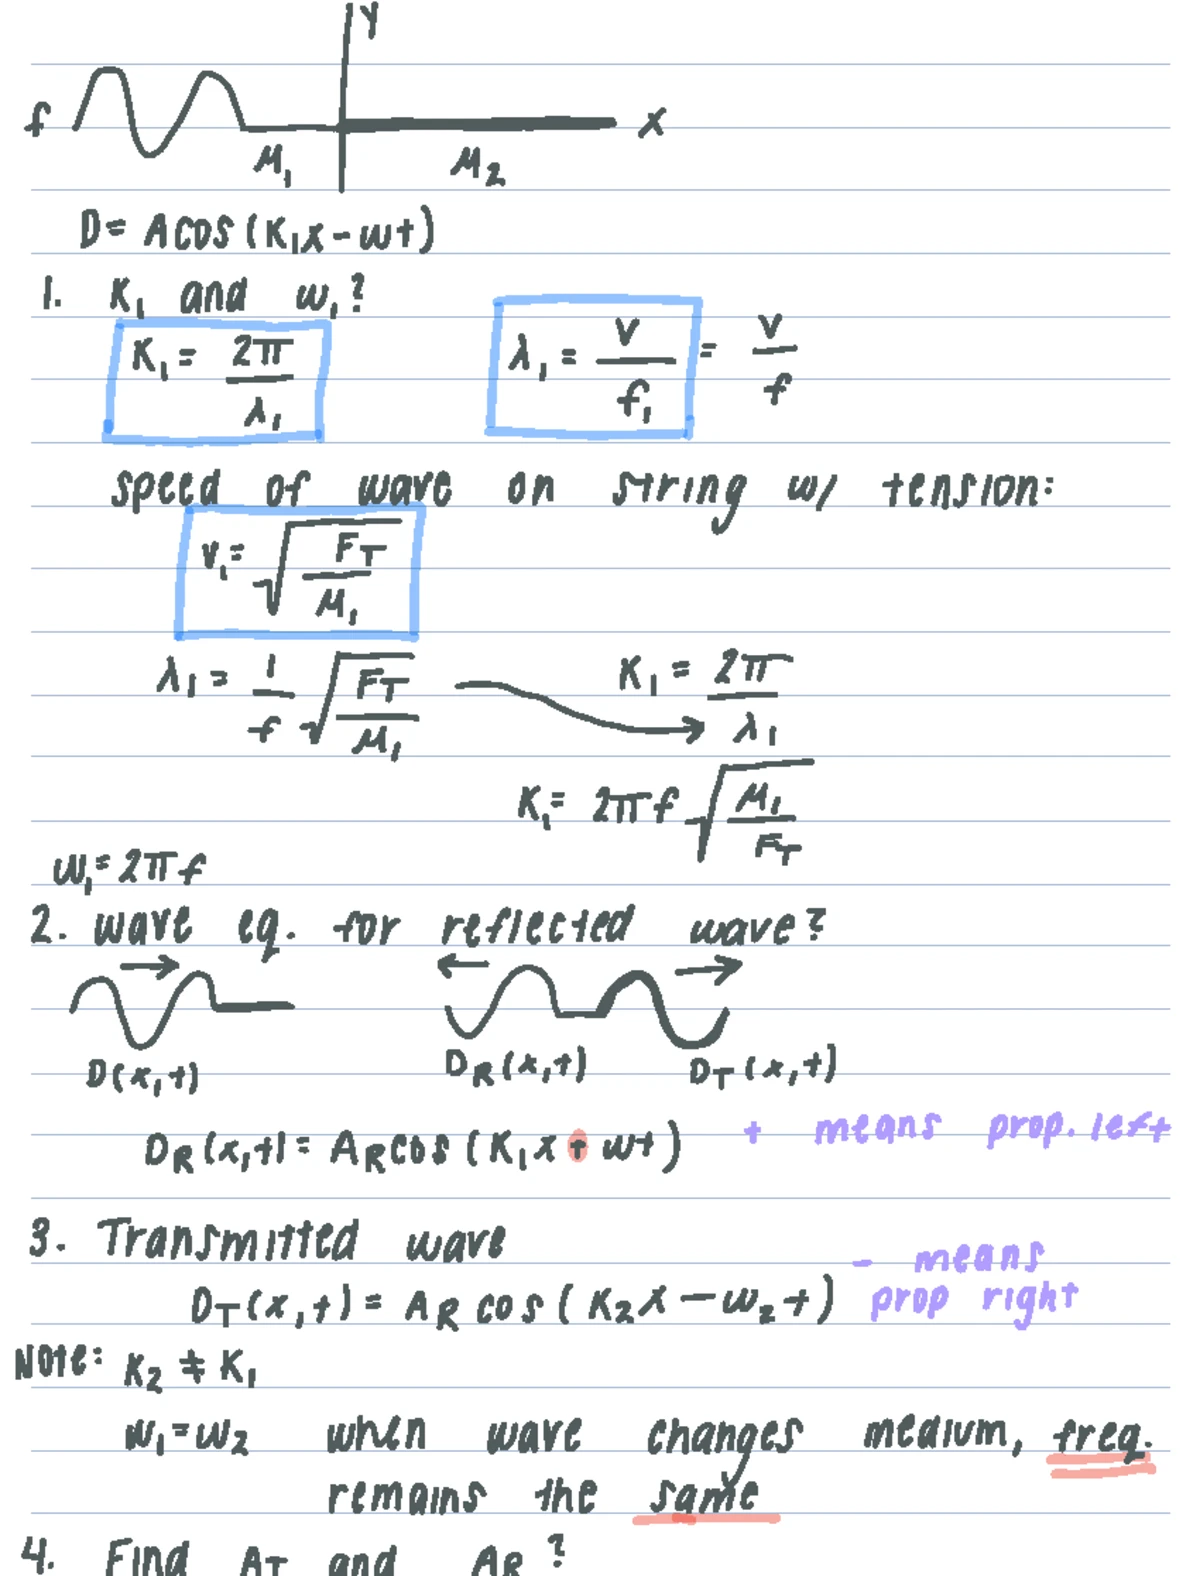 Y
f x
μ₁ μ₂
D = A cos (K₁x - ωt)
1. K₁ and ω₁?
K₁ = 2π/λ₁ λ₁ = v/f₁ = v/f
speed of wave on string w/ tension:
v₁ = √(F_T/μ₁)
λ₁ = 1/f √(F_T/μ₁) K₁ = 2π/λ₁
K₁ = 2πf √(μ₁/F_T)
ω₁ = 2πf
2. wave eq. for reflected wave?
D(x,t) D_R(x,t) D_T(x,t)
D_R(x,t) = A_R cos (K₁x + ωt) + means prop. left
3. Transmitted wave
D_T(x,t) = A_R cos (K₂x - ω₂t) - means prop right
Note: K₂ ≠ K₁
ω₁ = ω₂ when wave changes medium, freq.
remains the same
4. Find A_T and A_R?